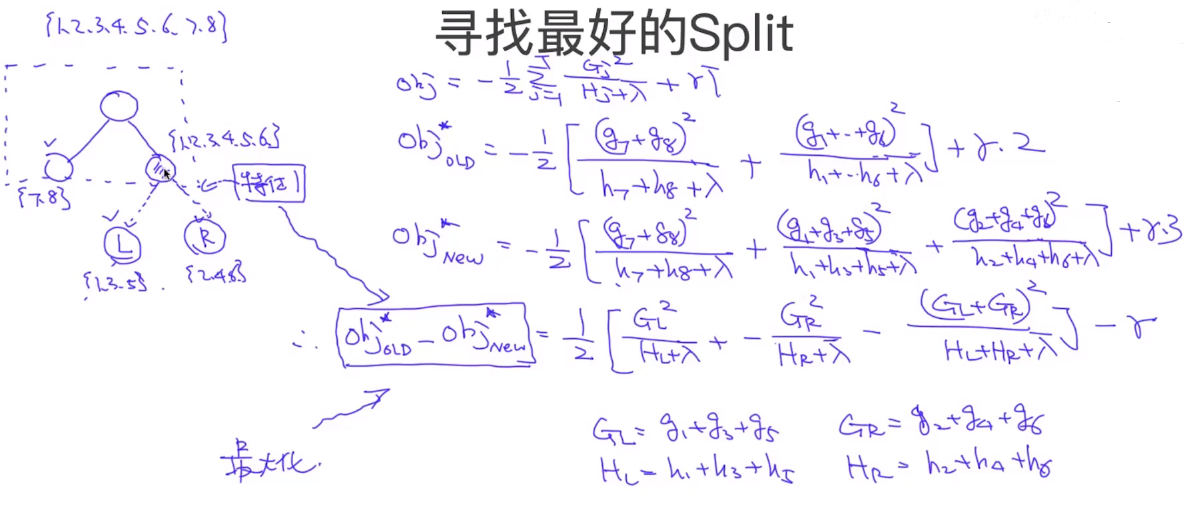 寻找最好的Split
{1.2.3.4.5.6.7.8}
obj = -1/2 Σ_{j=1}^{T} G_j^2/(H_j+λ) + γT
{1.2.3.4.5.6}
Obj*_OLD = -1/2 [ (g7+g8)^2/(h7+h8+λ) + (g1+..+g6)^2/(h1+..h6+λ) ] + γ.2
{7.8}
特征1
L R
{1.3.5} {2.4.6}
Obj*_NEW = -1/2 [ (g7+g8)^2/(h7+h8+λ) + (g1+g3+g5)^2/(h1+h3+h5+λ) + (g2+g4+g6)^2/(h2+h4+h6+λ) ] + γ.3
∴ Obj*_OLD - Obj*_NEW = 1/2 [ G_L^2/(H_L+λ) + - G_R^2/(H_R+λ) - (G_L+G_R)^2/(H_L+H_R+λ) ] - γ
最大化.
G_L = g1+g3+g5 G_R = g2+g4+g6
H_L = h1+h3+h5 H_R = h2+h4+h6